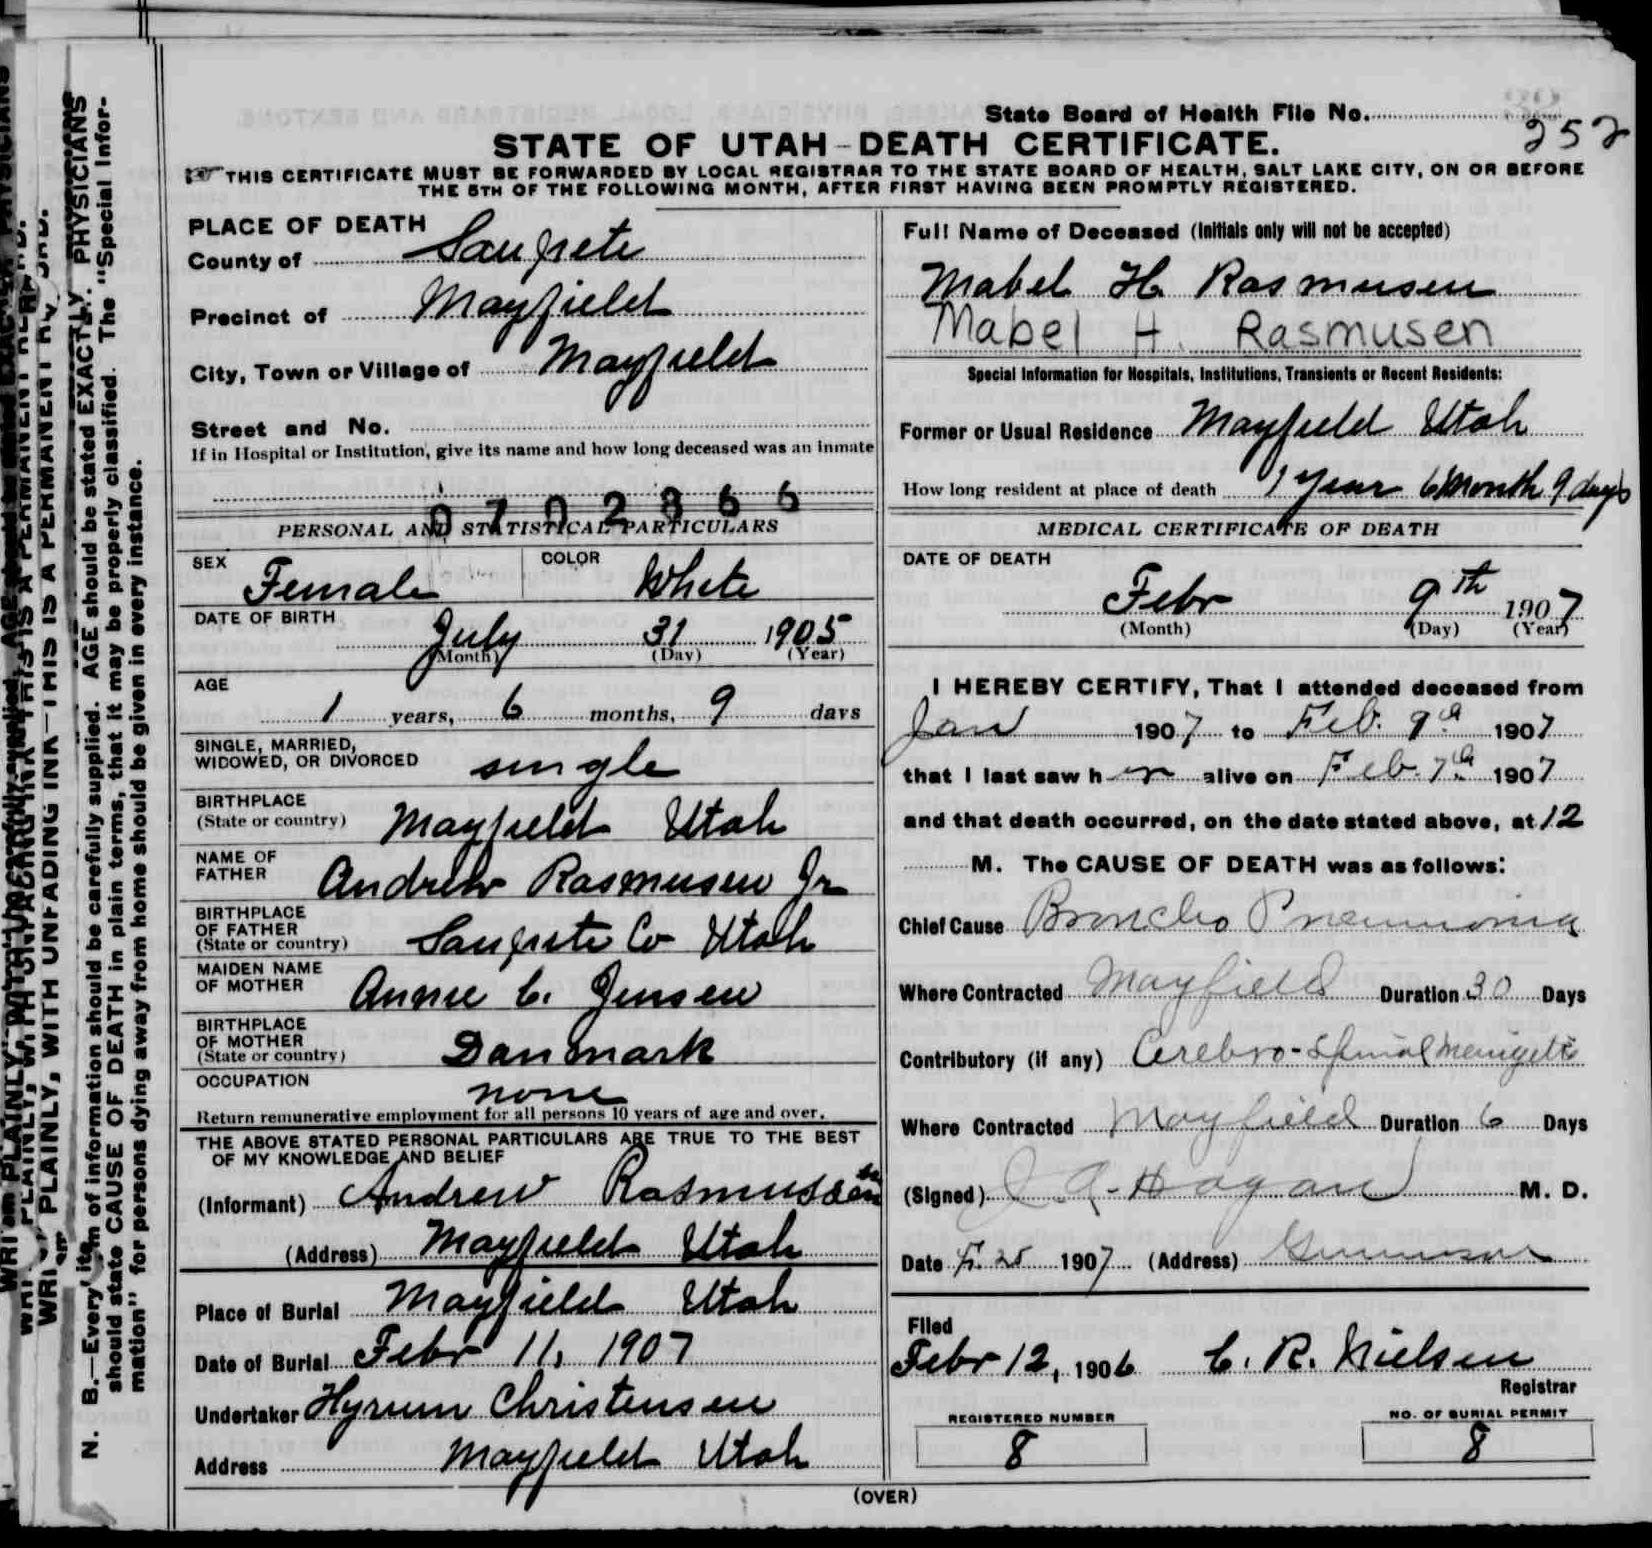 State Board of Health File No. 252
STATE OF UTAH-DEATH CERTIFICATE.
THIS CERTIFICATE MUST BE FORWARDED BY LOCAL REGISTRAR TO THE STATE BOARD OF HEALTH, SALT LAKE CITY, ON OR BEFORE
THE 5TH OF THE FOLLOWING MONTH, AFTER FIRST HAVING BEEN PROMPTLY REGISTERED.
PLACE OF DEATH
County of Sanpete
Precinct of Mayfield
City, Town or Village of Mayfield
Street and No.
If in Hospital or Institution, give its name and how long deceased was an inmate
0702366
PERSONAL AND STATISTICAL PARTICULARS
SEX Female COLOR White
DATE OF BIRTH
July 31 1905
(Month) (Day) (Year)
AGE
1 years, 6 months, 9 days
SINGLE, MARRIED,
WIDOWED, OR DIVORCED single
BIRTHPLACE
(State or country) Mayfield Utah
NAME OF
FATHER Andrew Rasmusen Jr
BIRTHPLACE
OF FATHER
(State or country) Sanpete Co Utah
MAIDEN NAME
OF MOTHER Annie C. Jensen
BIRTHPLACE
OF MOTHER
(State or country) Danmark
OCCUPATION none
Return remunerative employment for all persons 10 years of age and over.
THE ABOVE STATED PERSONAL PARTICULARS ARE TRUE TO THE BEST
OF MY KNOWLEDGE AND BELIEF
(Informant) Andrew Rasmussen
(Address) Mayfield Utah
Place of Burial Mayfield Utah
Date of Burial Febr 11, 1907
Undertaker Hyrum Christensen
Address Mayfield Utah
Full Name of Deceased (Initials only will not be accepted)
Mabel H. Rasmusen
Mabel H. Rasmusen
Special Information for Hospitals, Institutions, Transients or Recent Residents:
Former or Usual Residence Mayfield Utah
How long resident at place of death 1 year 6 Month 9 days
MEDICAL CERTIFICATE OF DEATH
DATE OF DEATH
Febr 9th 1907
(Month) (Day) (Year)
I HEREBY CERTIFY, That I attended deceased from
Jan 1907 to Feb. 9th 1907
that I last saw her alive on Feb. 7th 1907
and that death occurred, on the date stated above, at 12
M. The CAUSE OF DEATH was as follows:
Chief Cause Broncho Pneumonia
Where Contracted Mayfield Duration 30 Days
Contributory (if any) Cerebro-Spinal
Where Contracted Mayfield Duration 6 Days
(Signed) Hagan M. D.
Date F. 25 1907 (Address) Gunnison
Filed
Febr 12, 1906 C. R. Nielsen
Registrar
REGISTERED NUMBER
8
NO. OF BURIAL PERMIT
8
(OVER)
WRITE PLAINLY, WITH UNFADING INK—THIS IS A PERMANENT RECORD.
N. B.—Every item of information should be carefully supplied. AGE should be stated EXACTLY. PHYSICIANS
should state CAUSE OF DEATH in plain terms, that it may be properly classified. The "Special Infor-
mation" for persons dying away from home should be given in every instance.